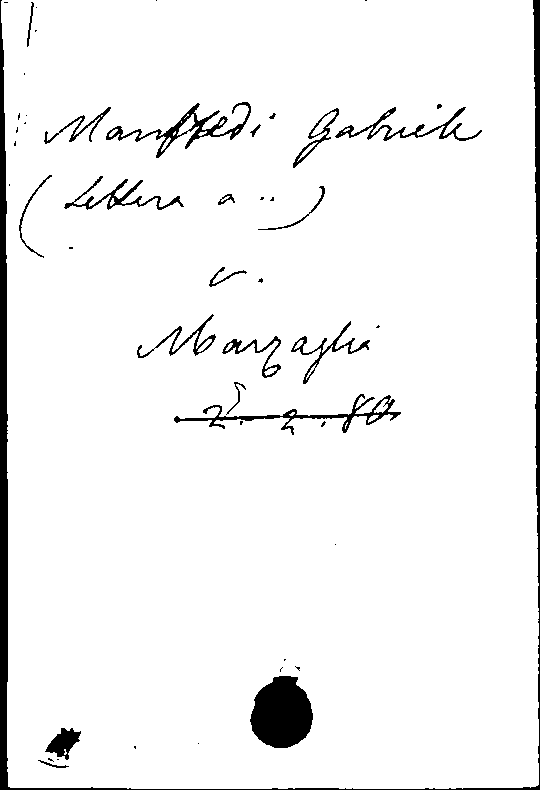 Manfredi Gabriele
(Lettera a ..)
v.
Marzaglia